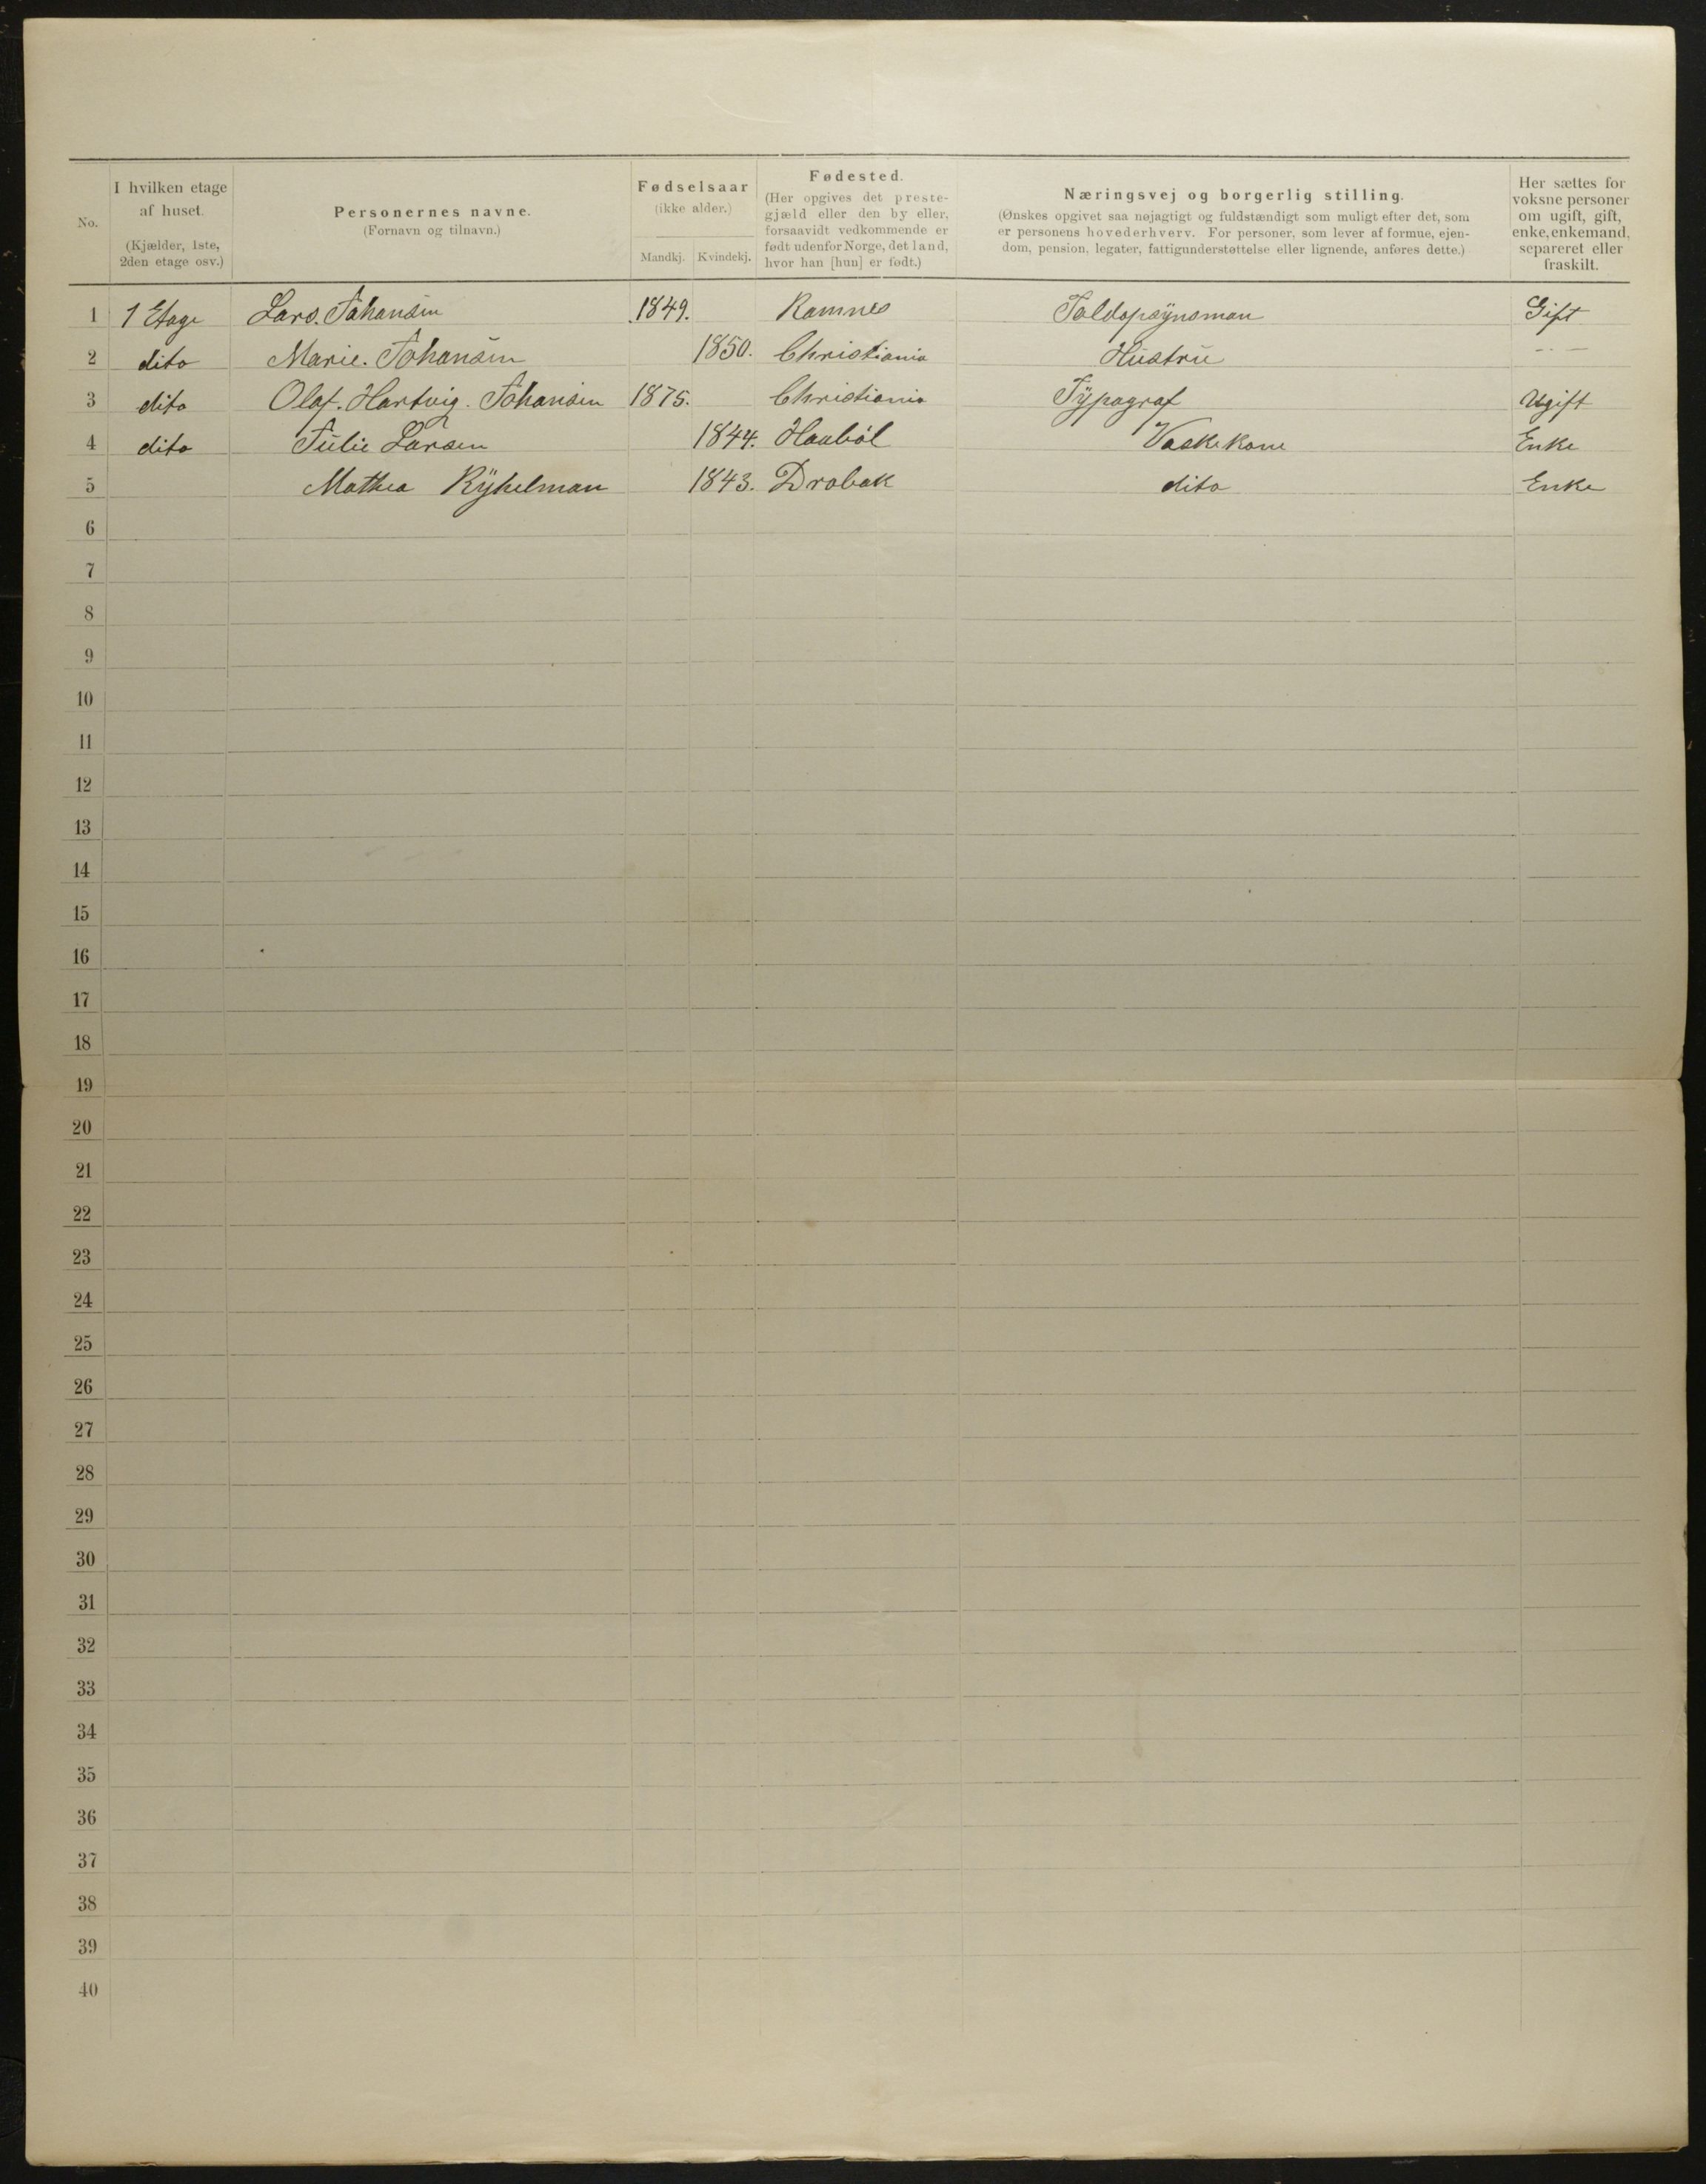 No.
I hvilken etage af huset.
(Kjælder, 1ste, 2den etage osv.)
Personernes navne.
(Fornavn og tilnavn.)
Fødselsaar
(ikke alder.)
Mandkj. Kvindekj.
Fødested.
(Her opgives det prestegjæld eller den by eller, forsaavidt vedkommende er født udenfor Norge, det land, hvor han [hun] er født.)
Næringsvej og borgerlig stilling.
(Ønskes opgivet saa nøjagtigt og fuldstændigt som muligt efter det, som er personens hovederhverv. For personer, som lever af formue, ejendom, pension, legater, fattigunderstøttelse eller lignende, anføres dette.)
Her sættes for voksne personer om ugift, gift, enke, enkemand, separeret eller fraskilt.
1 1 Etage Lars. Johansen 1849. Ramnes Toldopsynsman Gift
2 dito Marie. Johansen 1850. Christiania Hustru -.-
3 dito Olaf. Hartvig. Johansen 1875. Christiania Typograf Ugift
4 dito Julie Larsen 1844. Haabøl Vaskekone Enke
5 Mathea 1843. Drøbak dito Enke
6
7
8
9
10
11
12
13
14
15
16
17
18
19
20
21
22
23
24
25
26
27
28
29
30
31
32
33
34
35
36
37
38
39
40